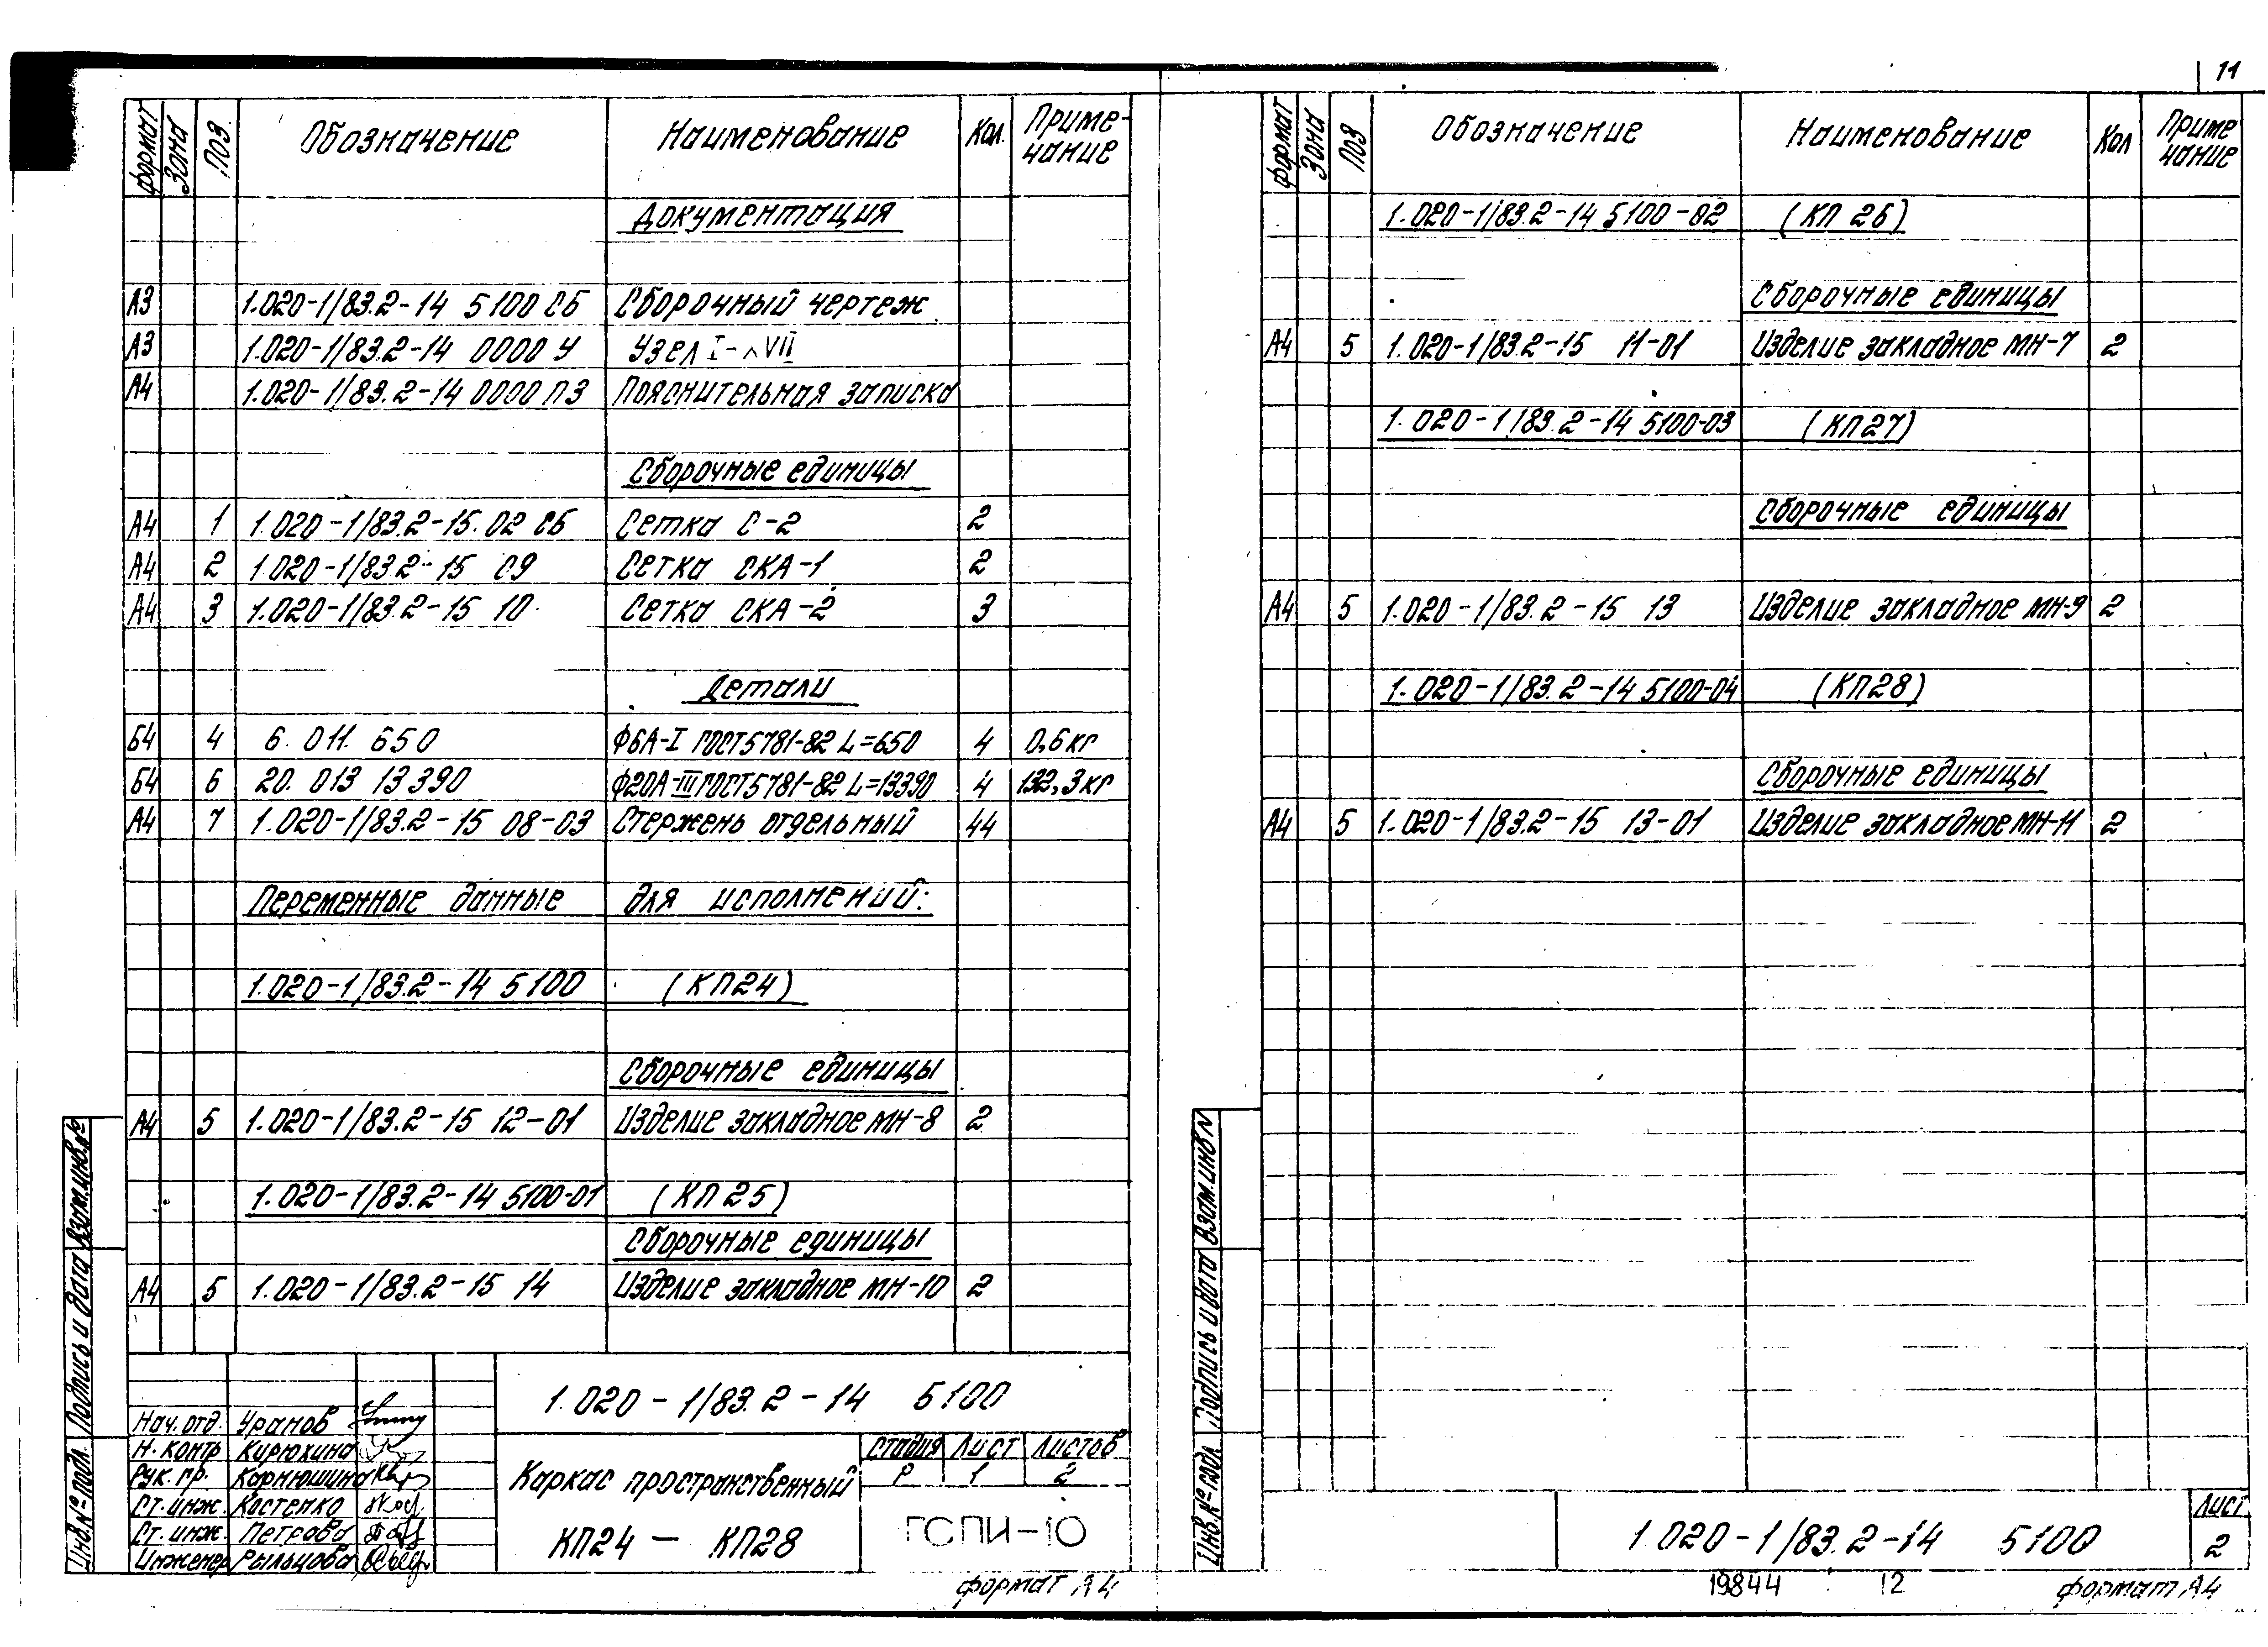 11
формат Зона Поз. Обозначение Наименование Кол. Приме-чание
Документация
А3 1.020-1/83.2-14 5100 СБ Сборочный чертеж
А3 1.020-1/83.2-14 0000 У Узел I-XVII
А4 1.020-1/83.2-14 0000 ПЗ Пояснительная записка
Сборочные единицы
А4 1 1.020-1/83.2-15. 02 СБ Сетка С-2 2
А4 2 1.020-1/83.2-15 09 Сетка СКА-1 2
А4 3 1.020-1/83.2-15 10 Сетка СКА-2 3
Детали
Б4 4 6. 011. 650 Ф6А-I ГОСТ5781-82 L=650 4 0,6 кг
Б4 6 20. 013 13390 Ф20А-III ГОСТ5781-82 L=13390 4 132,3 кг
А4 7 1.020-1/83.2-15 08-03 Стержень отдельный 44
Переменные данные для исполнений:
1.020-1/83.2-14 5100 (КП24)
Сборочные единицы
А4 5 1.020-1/83.2-15 12-01 Изделие закладное МН-8 2
1.020-1/83.2-14 5100-01 (КП25)
Сборочные единицы
А4 5 1.020-1/83.2-15 14 Изделие закладное МН-10 2
Взам.инв.№
Подпись и дата
Инв.№ подл.
1.020-1/83.2-14 5100
Нач.отд. Уранов
Н. контр Кирюхина
Рук. гр. Карнюшина
Ст.инж. Костенко
Ст.инж. Петрова
Инженер Рыльцова
Каркас пространственный
КП24 — КП28
Стадия Лист Листов
Р 1 2
ГСПИ-10
формат А4
формат Зона Поз Обозначение Наименование Кол Приме чание
1.020-1/83.2-14 5100-02 (КП 26)
Сборочные единицы
А4 5 1.020-1/83.2-15 11-01 Изделие закладное МН-7 2
1.020-1/83.2-14 5100-03 (КП27)
Сборочные единицы
А4 5 1.020-1/83.2-15 13 Изделие закладное МН-9 2
1.020-1/83.2-14 5100-04 (КП28)
Сборочные единицы
А4 5 1.020-1/83.2-15 13-01 Изделие закладное МН-11 2
Взам.инв N
Подпись и дата
Инв.№ подл.
1.020-1/83.2-14 5100
Лист
2
19844 12
формат А4